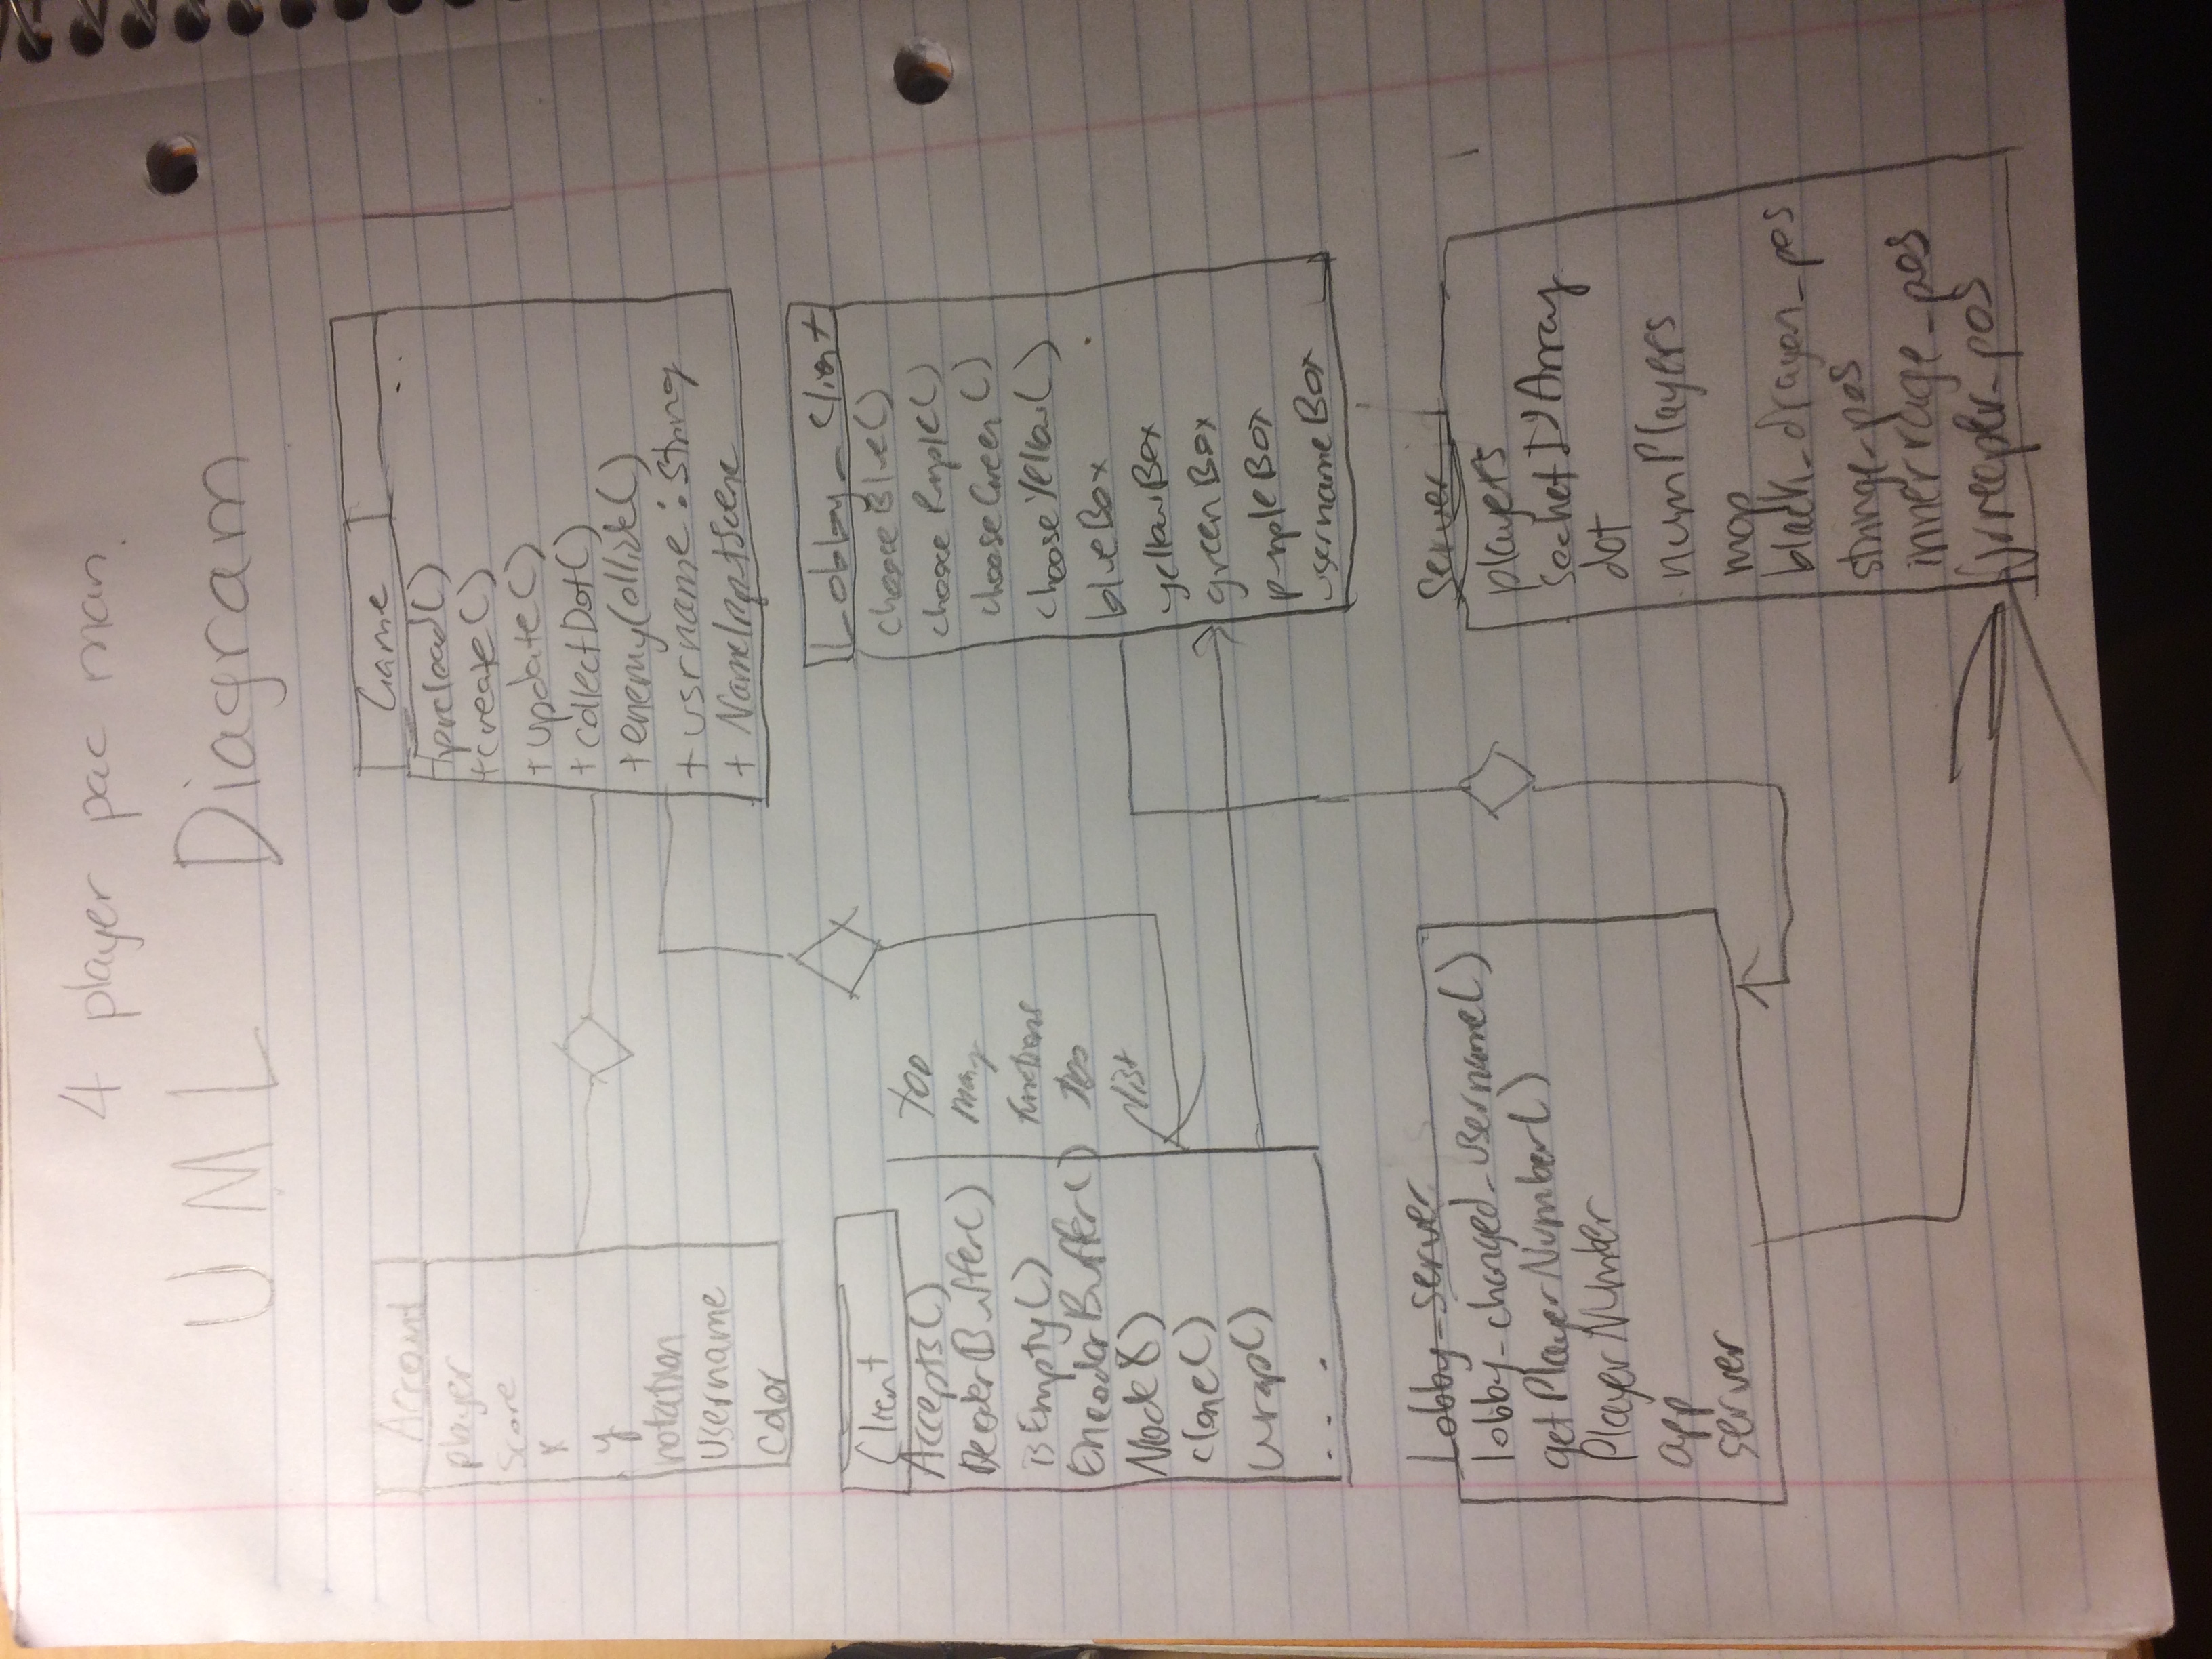 4 player pac man
UML Diagram
Account
player
score
x
y
rotation
username
color
Game
+preload()
+create()
+update()
+collectDot()
+enemyCollide()
+usrname: String
+ NameInputScene
Client
Accepts()
DecoderBuffer()
isEmpty()
EncoderBuffer()
Node()
clone()
wrap()
...
too
many
functions
too
list
Lobby_Client
chooseBlue()
choosePurple()
chooseGreen()
chooseYellow()
blueBox
yellowBox
greenBox
purpleBox
usernameBox
Lobby_server
lobby_changed_username()
getPlayerNumber()
PlayerNumber
app
server
Server
players
socketIDArray
dot
numPlayers
map
black_dragon_pos
stringe_pos
innerrage_pos